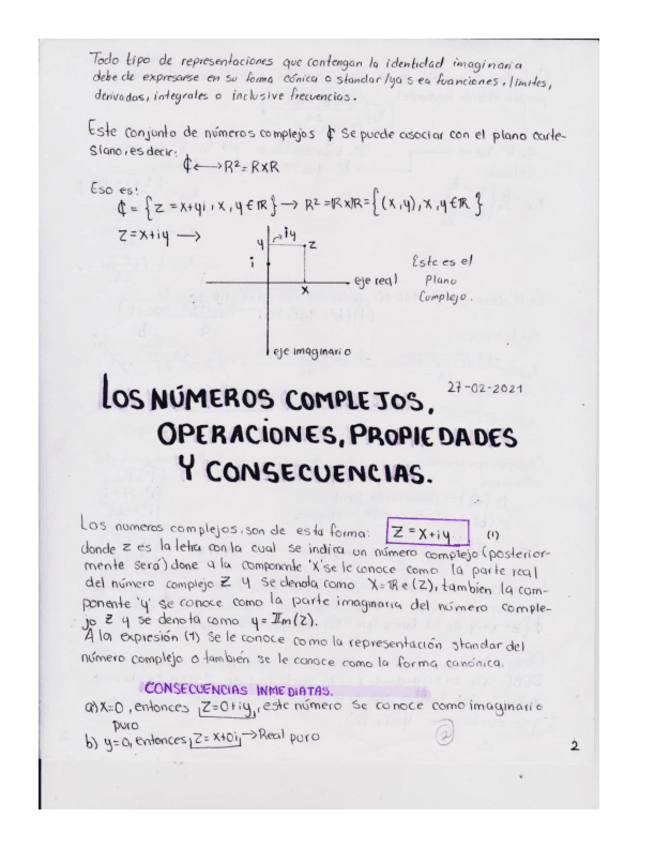 Todo tipo de representaciones que contengan la identidad imaginaria
debe de expresarse en su forma cónica o standar/ya sea funciones, limites,
derivadas, integrales o inclusive frecuencias.
Este conjunto de números complejos ₵ Se puede asociar con el plano carte-
siano, es decir:
₵ ⟷ R²= RxR
Eso es:
₵ = {z = x+yi, x, y ∈ ℝ} → R² = ℝxℝ = {(x,y), x, y ∈ ℝ}
Z = x+iy →
y iy z
i
x eje real
Este es el
Plano
Complejo.
eje imaginario
27-02-2021
LOS NÚMEROS COMPLEJOS,
OPERACIONES, PROPIEDADES
Y CONSECUENCIAS.
Los numeros complejos, son de esta forma: Z = x+iy (1)
donde z es la letra con la cual se indica un número complejo (posterior-
mente será) done a la componente 'x' se le conoce como la parte real
del número complejo Z y se denota como X=ℝe(z), tambien la com-
ponente 'y' se conoce como la parte imaginaria del número comple-
jo Z y se denota como y=𝕀m(z).
A la expresión (1) Se le conoce como la representación standar del
número complejo o también se le conoce como la forma canónica.
CONSECUENCIAS INMEDIATAS.
a) X=0, entonces Z=0+iy, este número se conoce como imaginario
puro
b) y=0, entonces Z=x+0i → Real puro
2
2